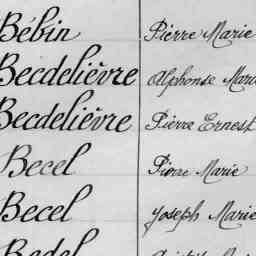 Bébin Pierre Marie
Becdelièvre Alphonse Marie
Becdelièvre Pierre Ernest
Becel Pierre Marie
Becel Joseph Marie
Bedel